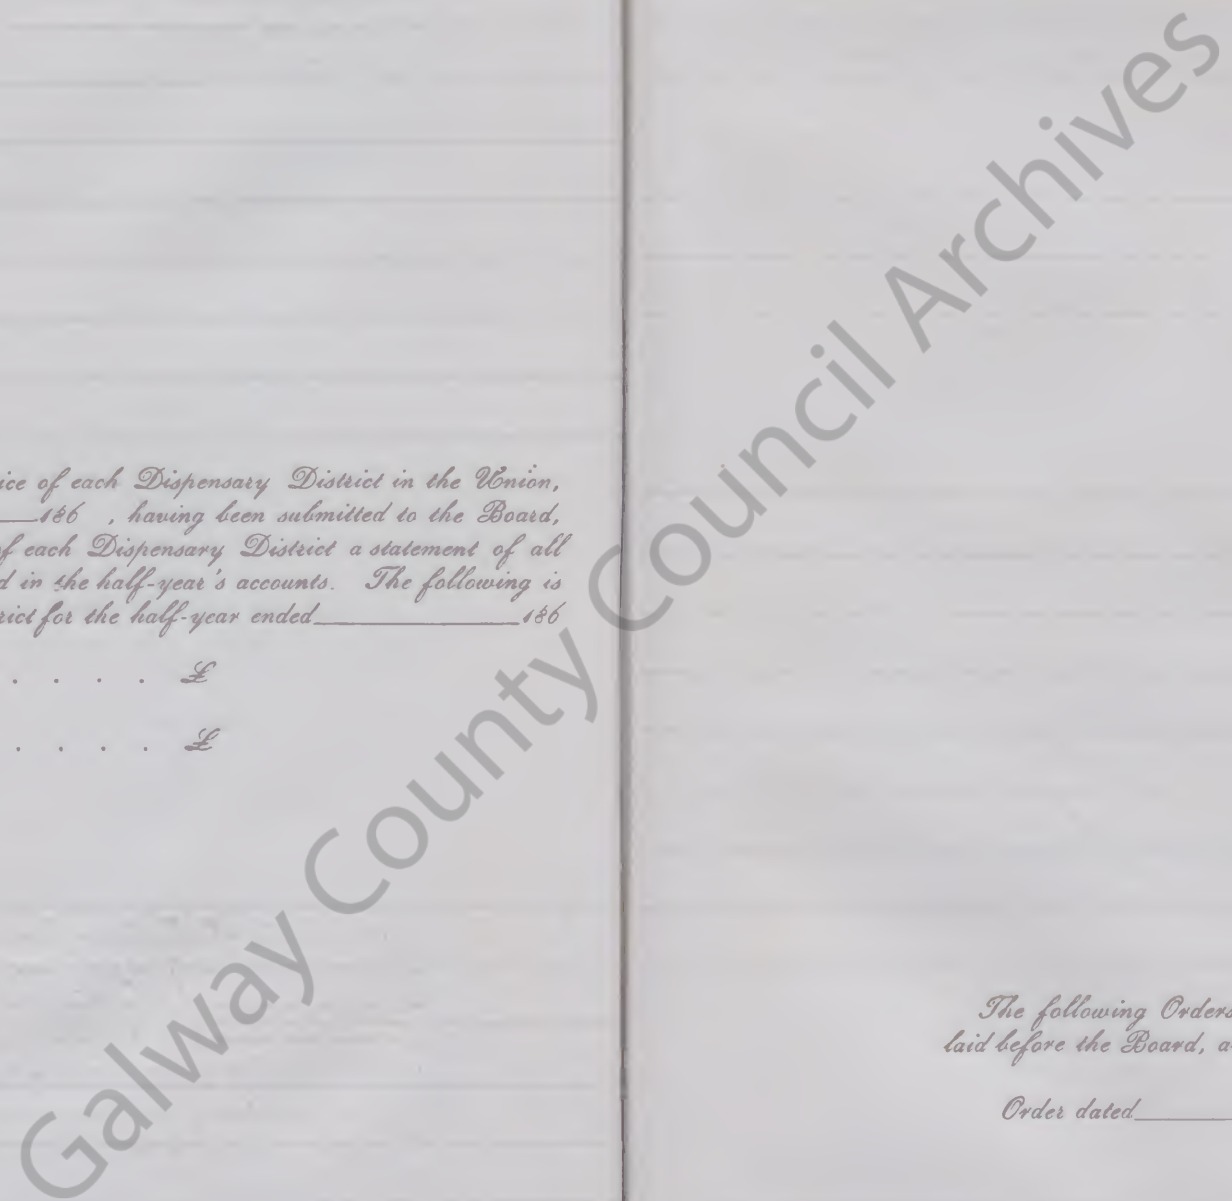 ice of each Dispensary District in the Union,
186 , having been submitted to the Board,
of each Dispensary District a statement of all
d in the half-year's accounts. The following is
rict for the half-year ended 186
. . . . £
. . . . £
The following Orders
laid before the Board, a
Order dated
Galway County Council Archives